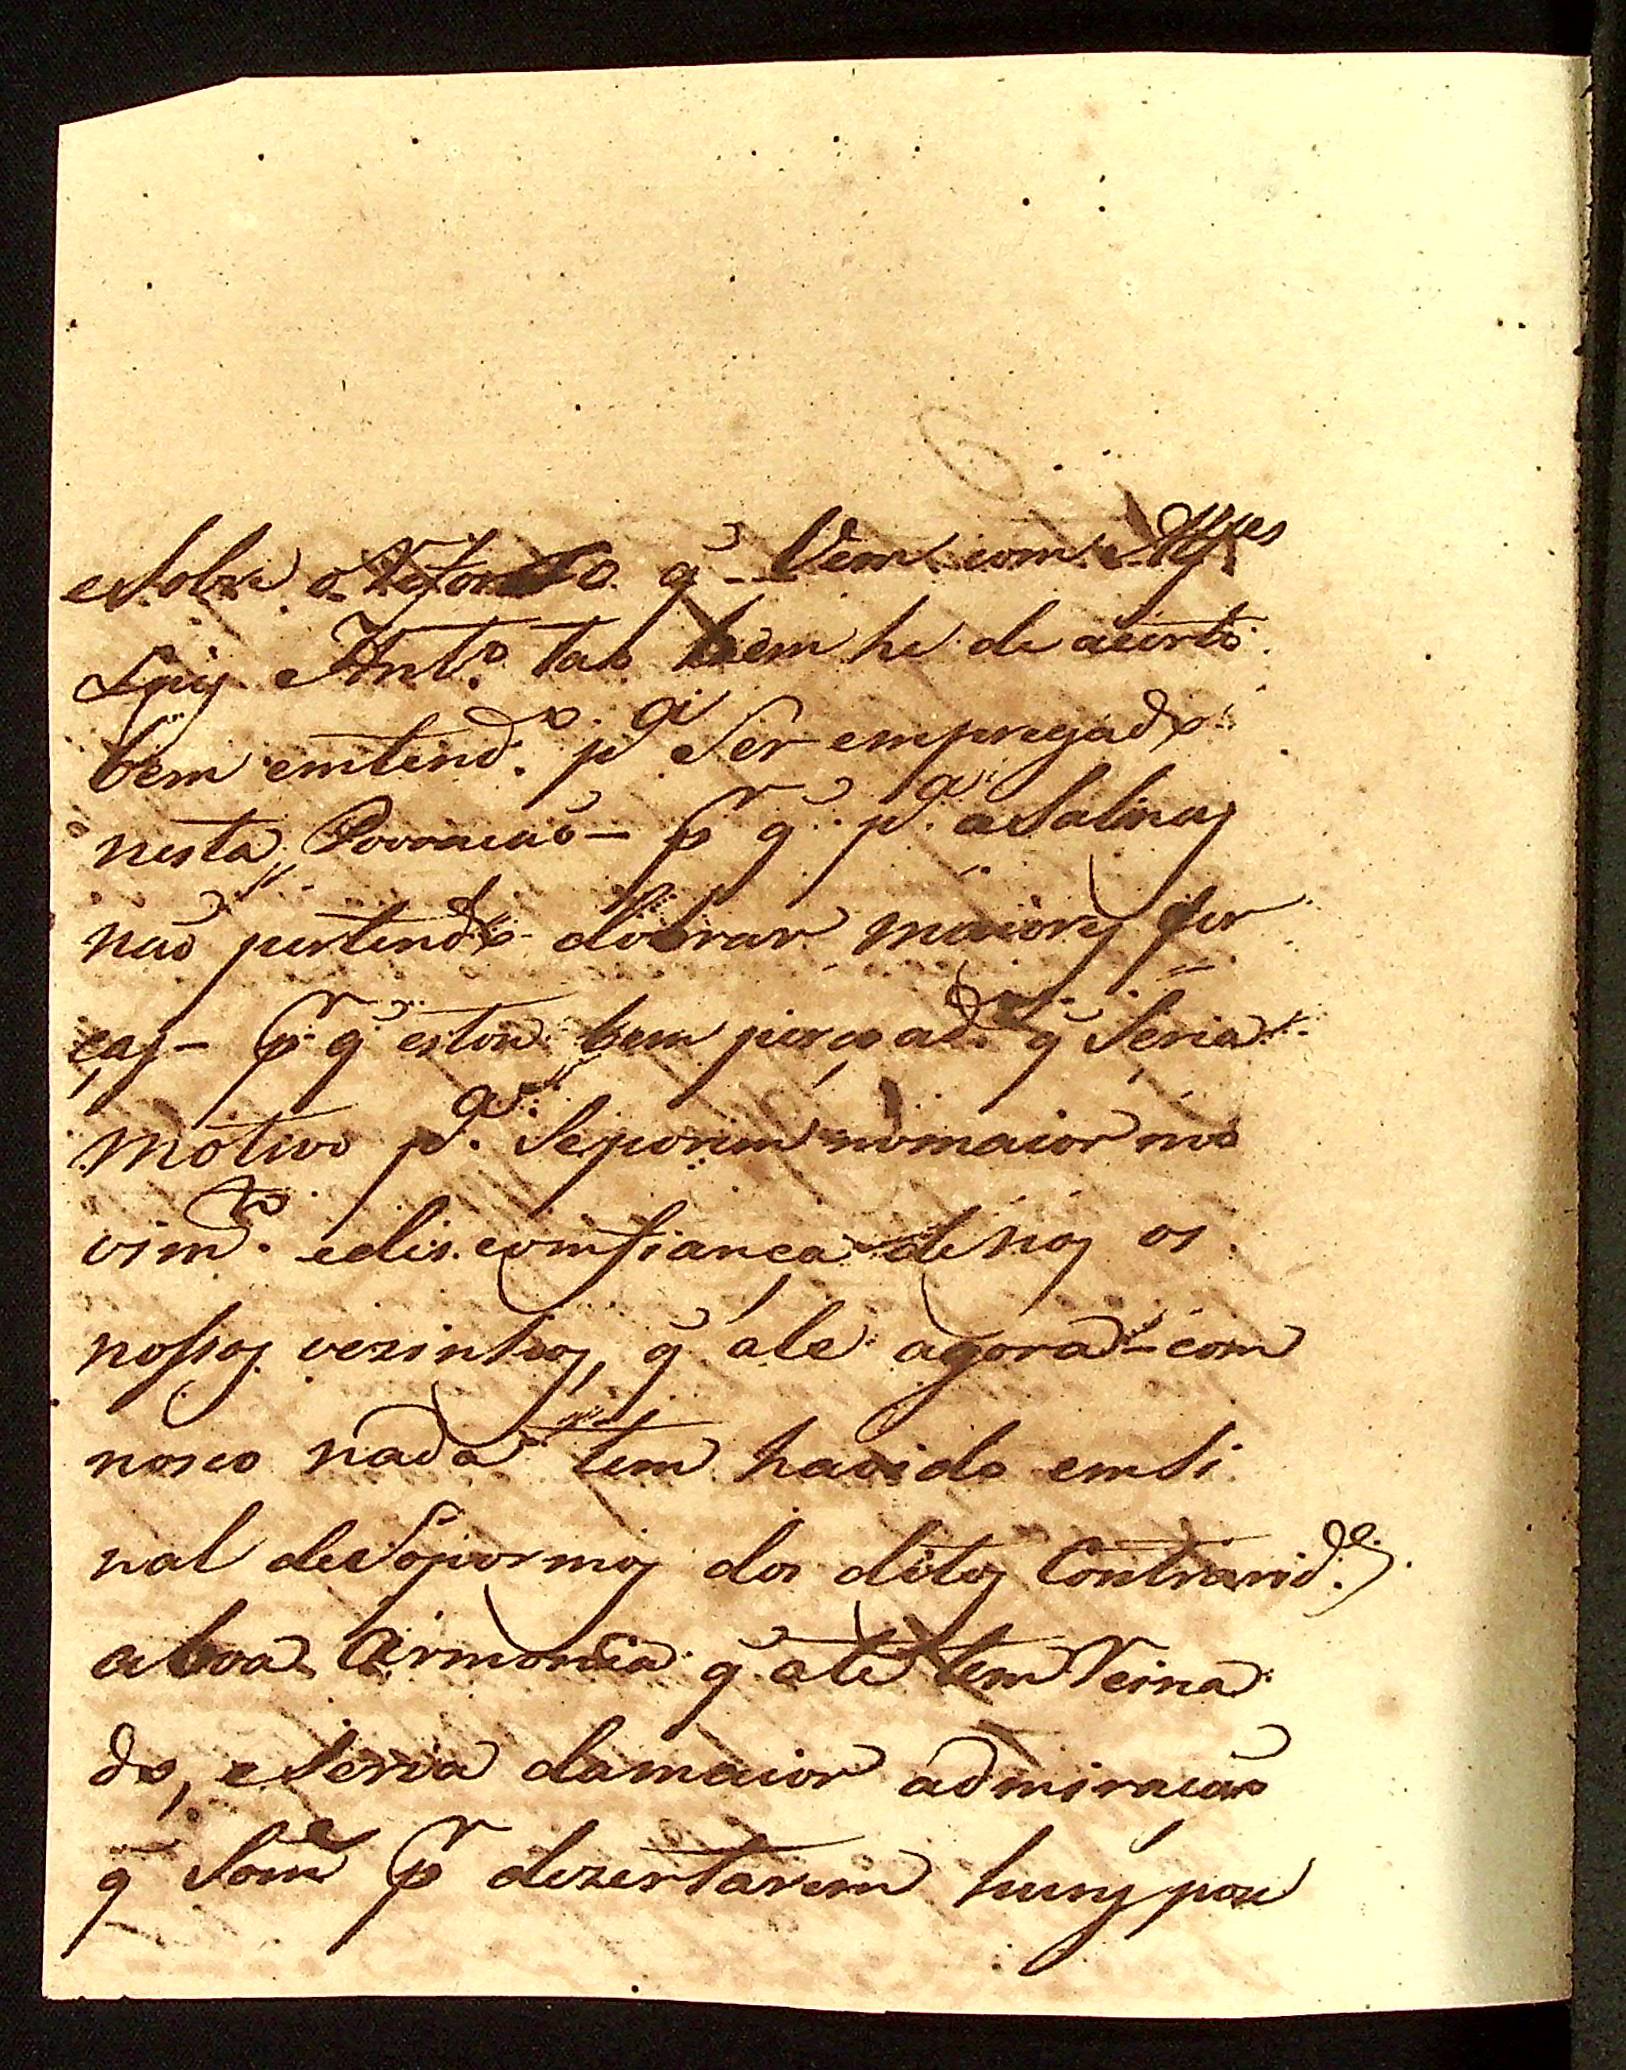 eSobre o Reforço q̃ Vem com o Alfes
Luis Antº. tao bem he de acerto
bem emtendº. pª. Ser empregado
nesta Povoacaõ - pr q̃ pª. aSalinas
naõ pertendo dobrar maiores for
ças - pr q̃ estou bem persoadº. q̃ Seria
motivo pª. Seporem nomaior mo
vimtº. edis comfiança de nos os
nossos vezinhos, q̃ ate agora - com
nosco nada tem havido emSi
nal deSopormos dos ditos Contraridᵉˢ.
a boa Armonia q̃ ate tem Reina
do, eSeria damaior admiracaõ
q̃ Somᵉ pr dezertarem huns pou